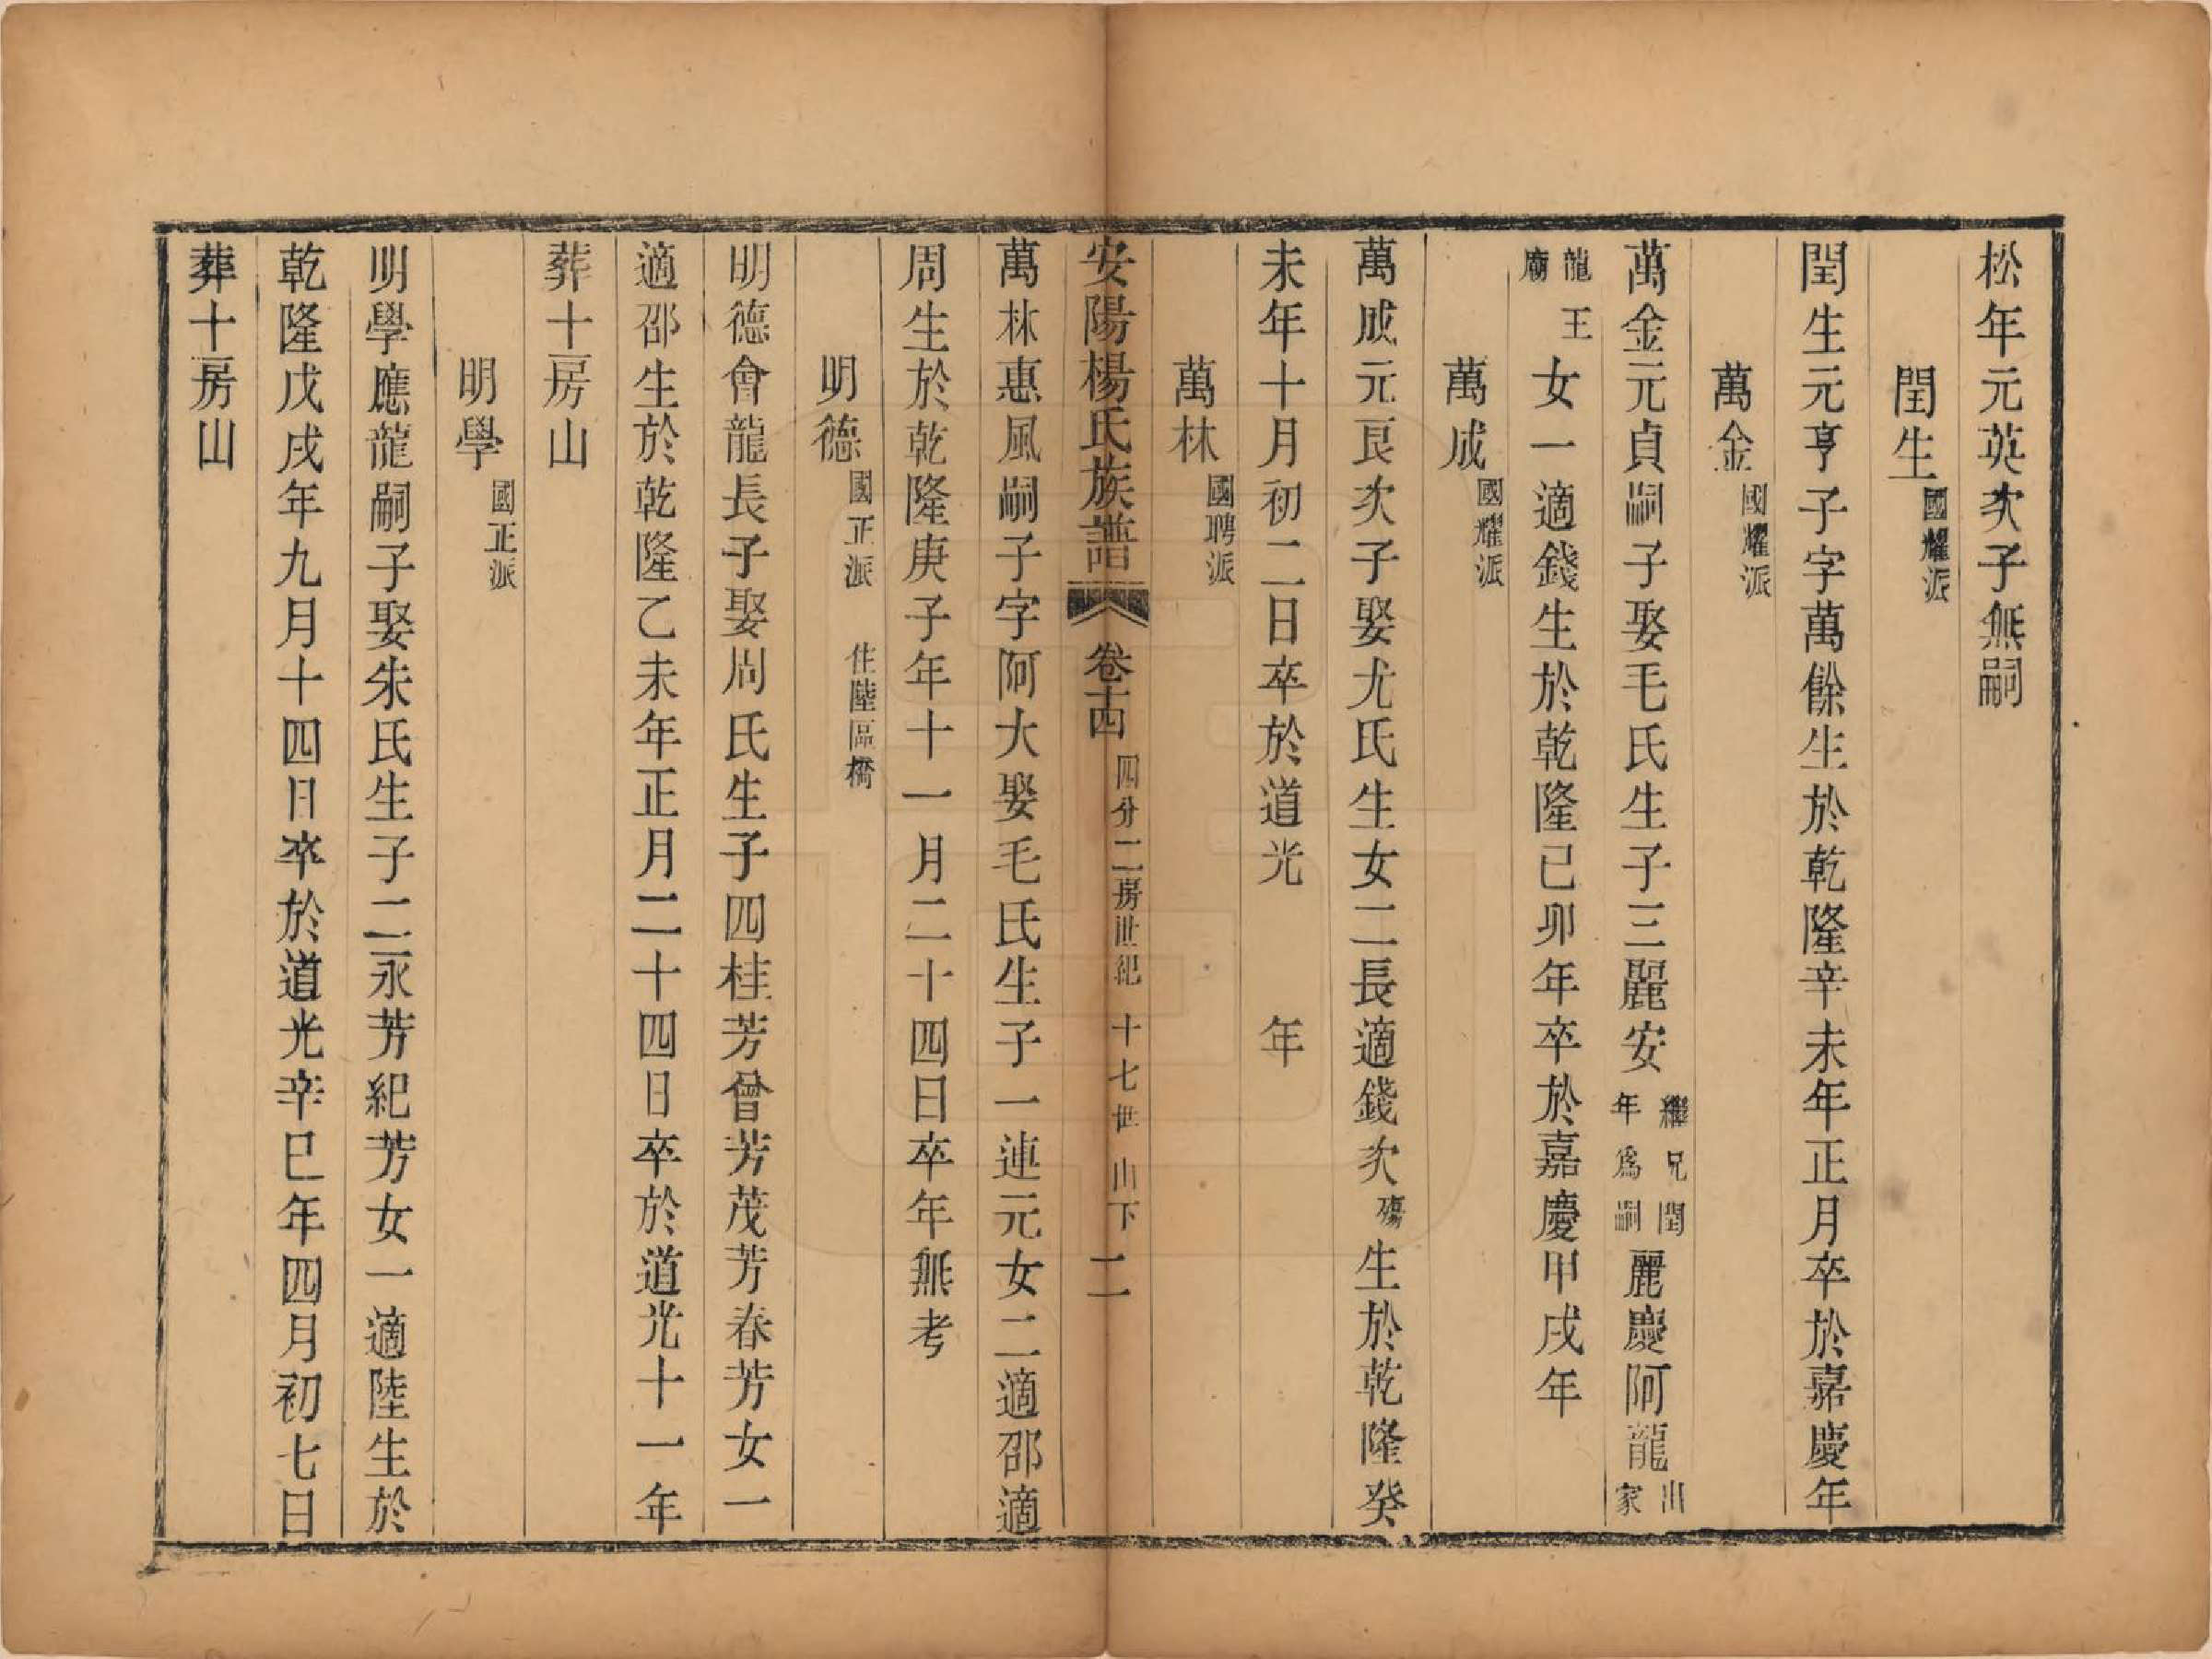 松年元英次子無嗣
閏生國耀派
閏生元亨子字萬餘生於乾隆辛未年正月卒於嘉慶年
萬金國耀派
萬金元貞嗣子娶毛氏生子三麗安繼兄閏年爲嗣麗慶阿龍出家
龍王廟女一適錢生於乾隆己卯年卒於嘉慶甲戌年
萬成國耀派
萬成元良次子娶尤氏生女二長適錢次殤生於乾隆癸
未年十月初二日卒於道光 年
萬林國聘派
安陽楊氏族譜 卷十四 四分二房世紀 十七世 山下 二
萬林惠風嗣子字阿大娶毛氏生子一連元女二適邵適
周生於乾隆庚子年十一月二十四日卒年無考
明德國正派 住陸區橋
明德會龍長子娶周氏生子四桂芳曾芳茂芳春芳女一
適邵生於乾隆乙未年正月二十四日卒於道光十一年
葬十房山
明學國正派
明學應龍嗣子娶朱氏生子二永芳紀芳女一適陸生於
乾隆戊戌年九月十四日卒於道光辛巳年四月初七日
葬十房山